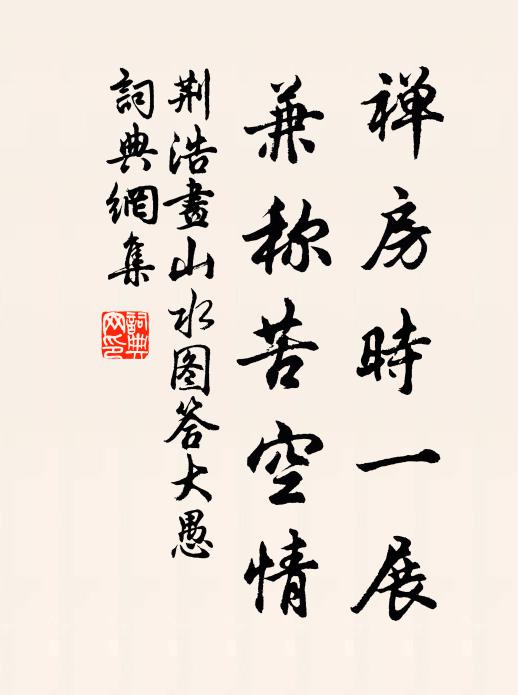 禅房時一展
兼称苦空情
荆浩畫山水图答大愚
詞典網集
詞典网印